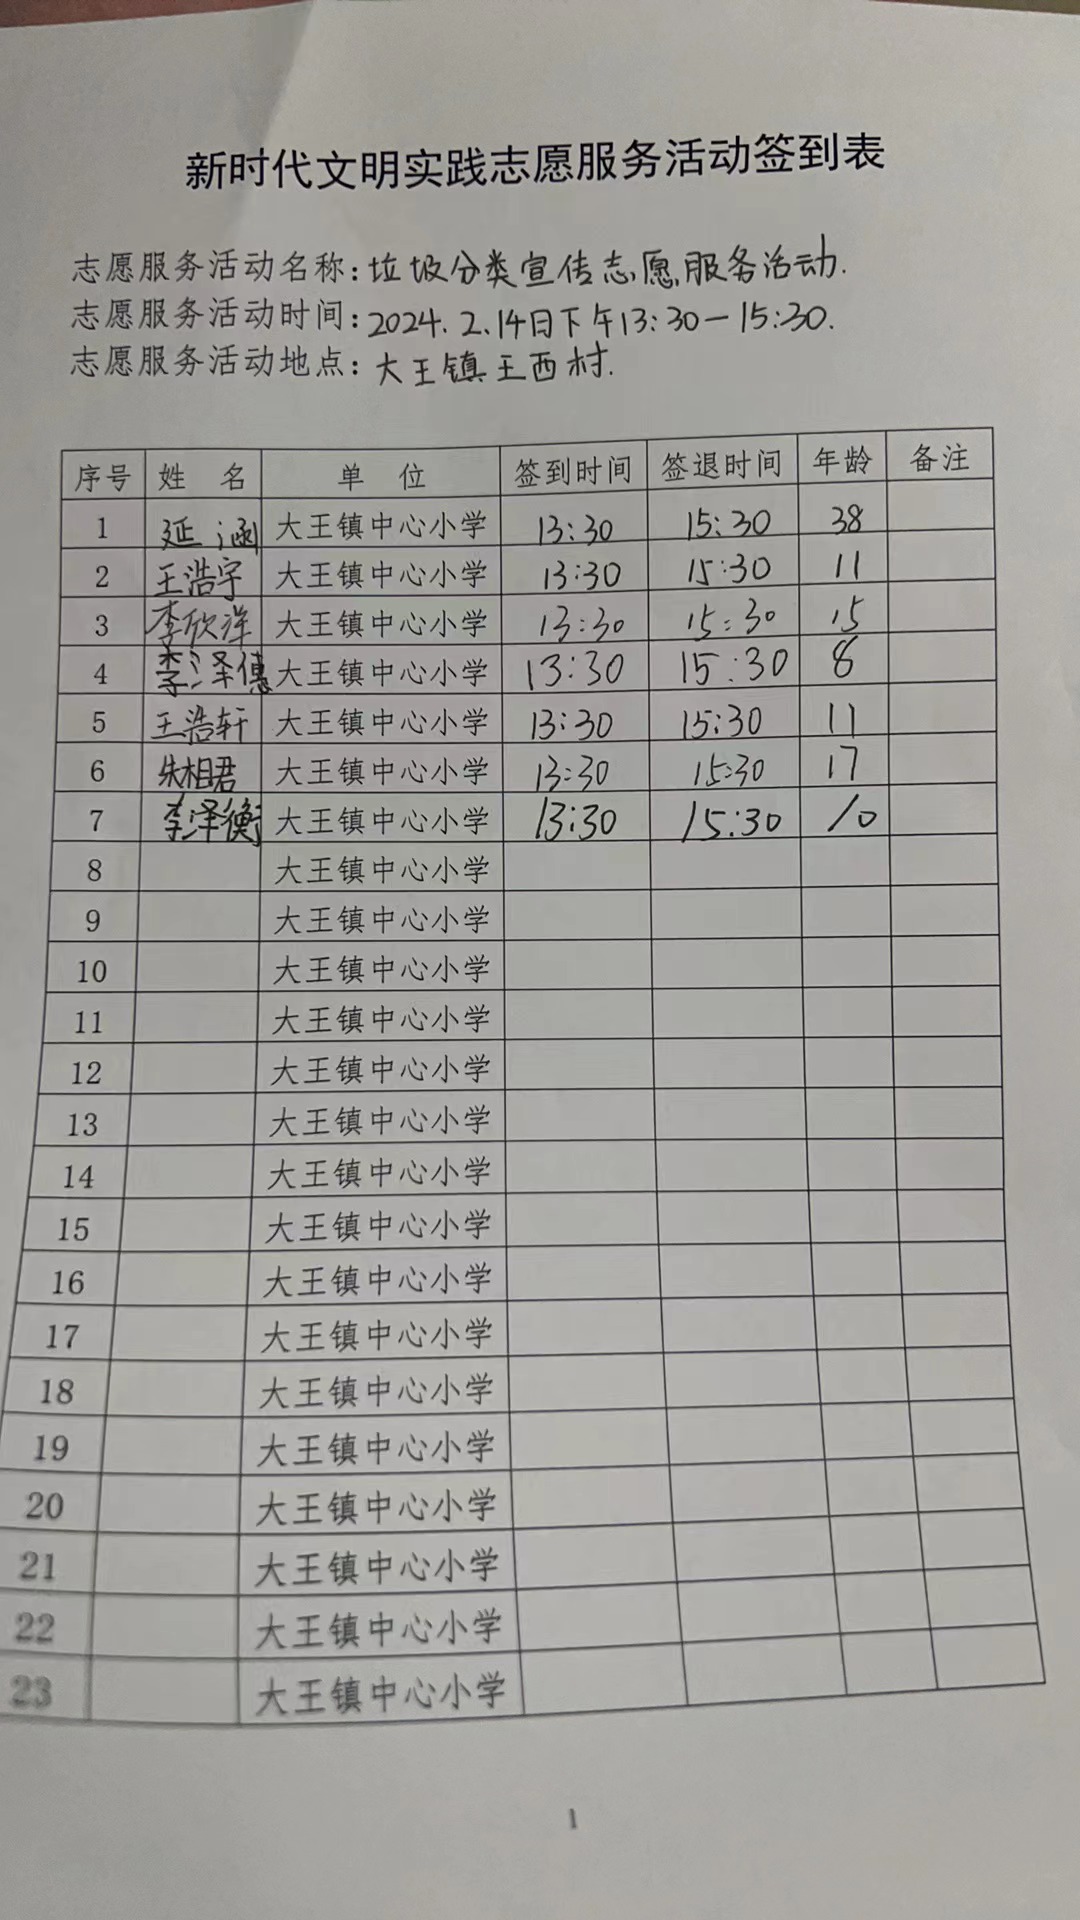 新时代文明实践志愿服务活动签到表
志愿服务活动名称:垃圾分类宣传志愿服务活动.
志愿服务活动时间:2024.2.14日下午13:30—15:30.
志愿服务活动地点:大王镇王西村.
序号 姓 名 单 位 签到时间 签退时间 年龄 备注
1 延涵 大王镇中心小学 13:30 15:30 38
2 王浩宇 大王镇中心小学 13:30 15:30 11
3 李欣洋 大王镇中心小学 13:30 15:30 15
4 李泽 大王镇中心小学 13:30 15:30 8
5 王浩轩 大王镇中心小学 13:30 15:30 11
6 朱相君 大王镇中心小学 13:30 15:30 17
7 李泽衡 大王镇中心小学 13:30 15:30 10
8 大王镇中心小学
9 大王镇中心小学
10 大王镇中心小学
11 大王镇中心小学
12 大王镇中心小学
13 大王镇中心小学
14 大王镇中心小学
15 大王镇中心小学
16 大王镇中心小学
17 大王镇中心小学
18 大王镇中心小学
19 大王镇中心小学
20 大王镇中心小学
21 大王镇中心小学
22 大王镇中心小学
23 大王镇中心小学
1